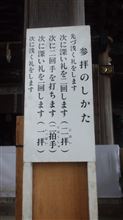 参拝のしかた
先づ浅く礼をします
次に深い礼を二回します(二拝)
次に二回手を打ちます(二拍手)
次に深い礼を一回します(一拝)
次に浅く礼をします